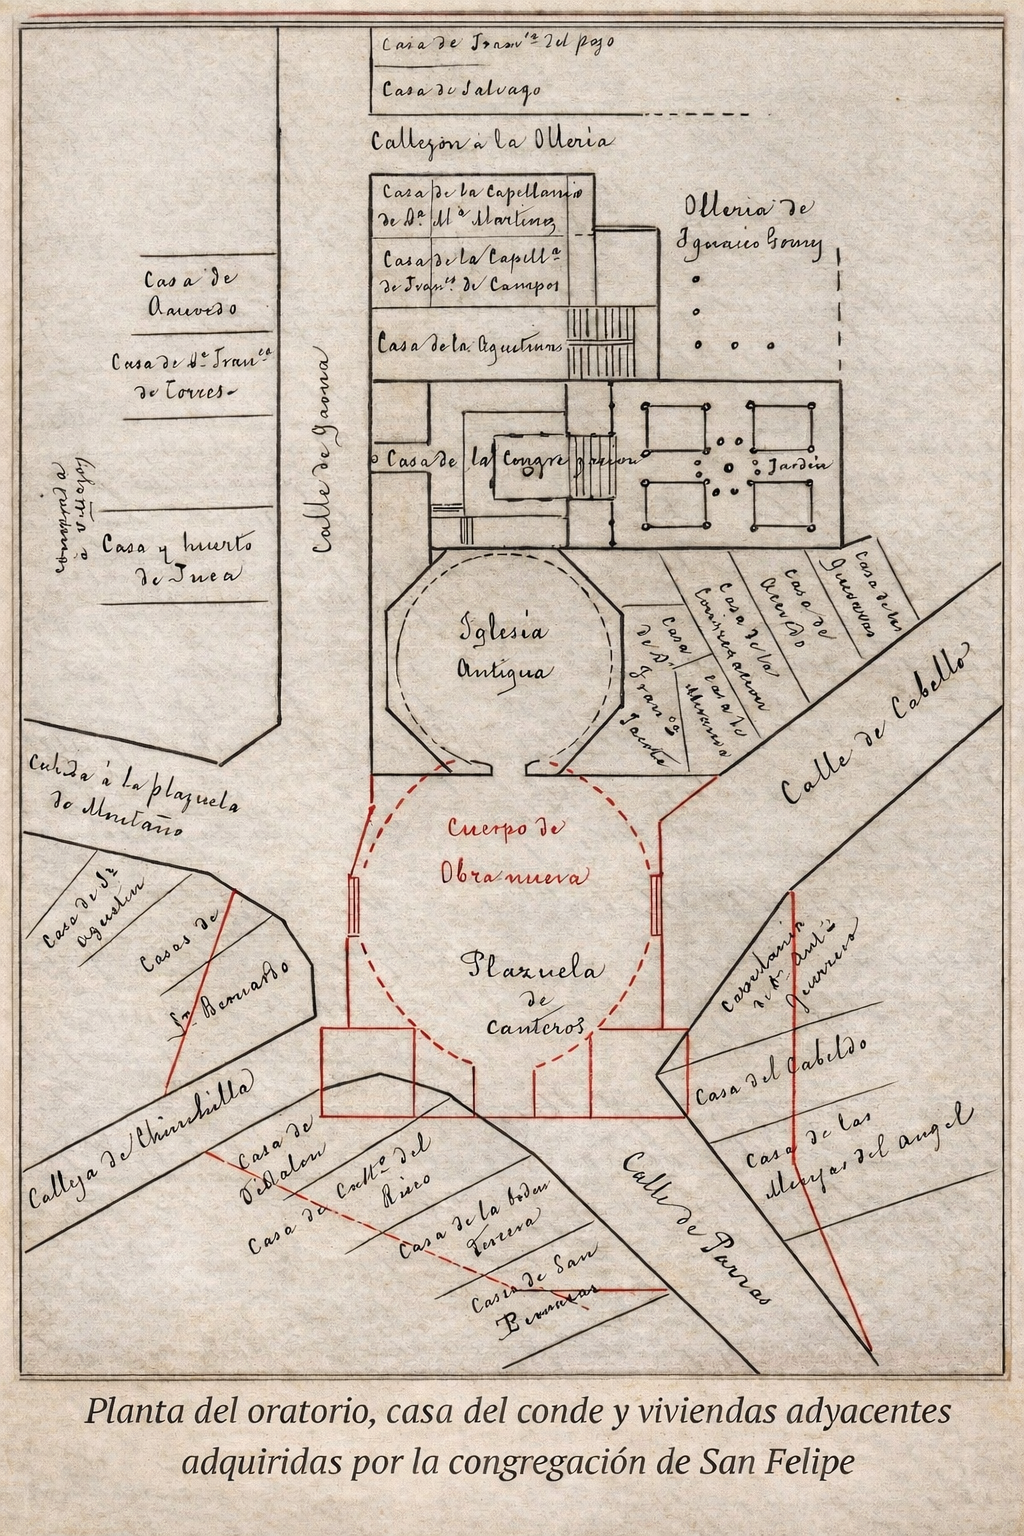 Casa de Fran.ca del pozo
Casa de Salvago
Callejon à la Ollería
Casa de la Capellania
de Dª Mª Martinez
Casa de la Capellª
de Fran.co de Campos
Casa de la Agustinas
Ollería de
Ignacio Gomez
Casa de
Acevedo
Casa de Dª Fran.ca
de Torres
Casa y huerto
de
Calle de Gaona
Casa de la Congregacion
Jardin
Iglesia
Antigua
Casa
de Dn
Fran.co
Casa de
Miranda
Casa de la
Congregacion
Casa de
Acevedo
Casa de las
Calle de Cabello
à la plazuela
de Montaño
Cuerpo de
Obra nueva
Plazuela
de
Canteros
Casa de Sn
Agustin
Casas de
Sn. Bernardo
Calleja de Chinchilla
de Dn Antº
Guerrero
Casa del Cabildo
Casa de las
Monjas del Angel
Casa de
Casa de
del
Casa de la
Tercera
Casa de San
Calle de Parras
Planta del oratorio, casa del conde y viviendas adyacentes
adquiridas por la congregación de San Felipe